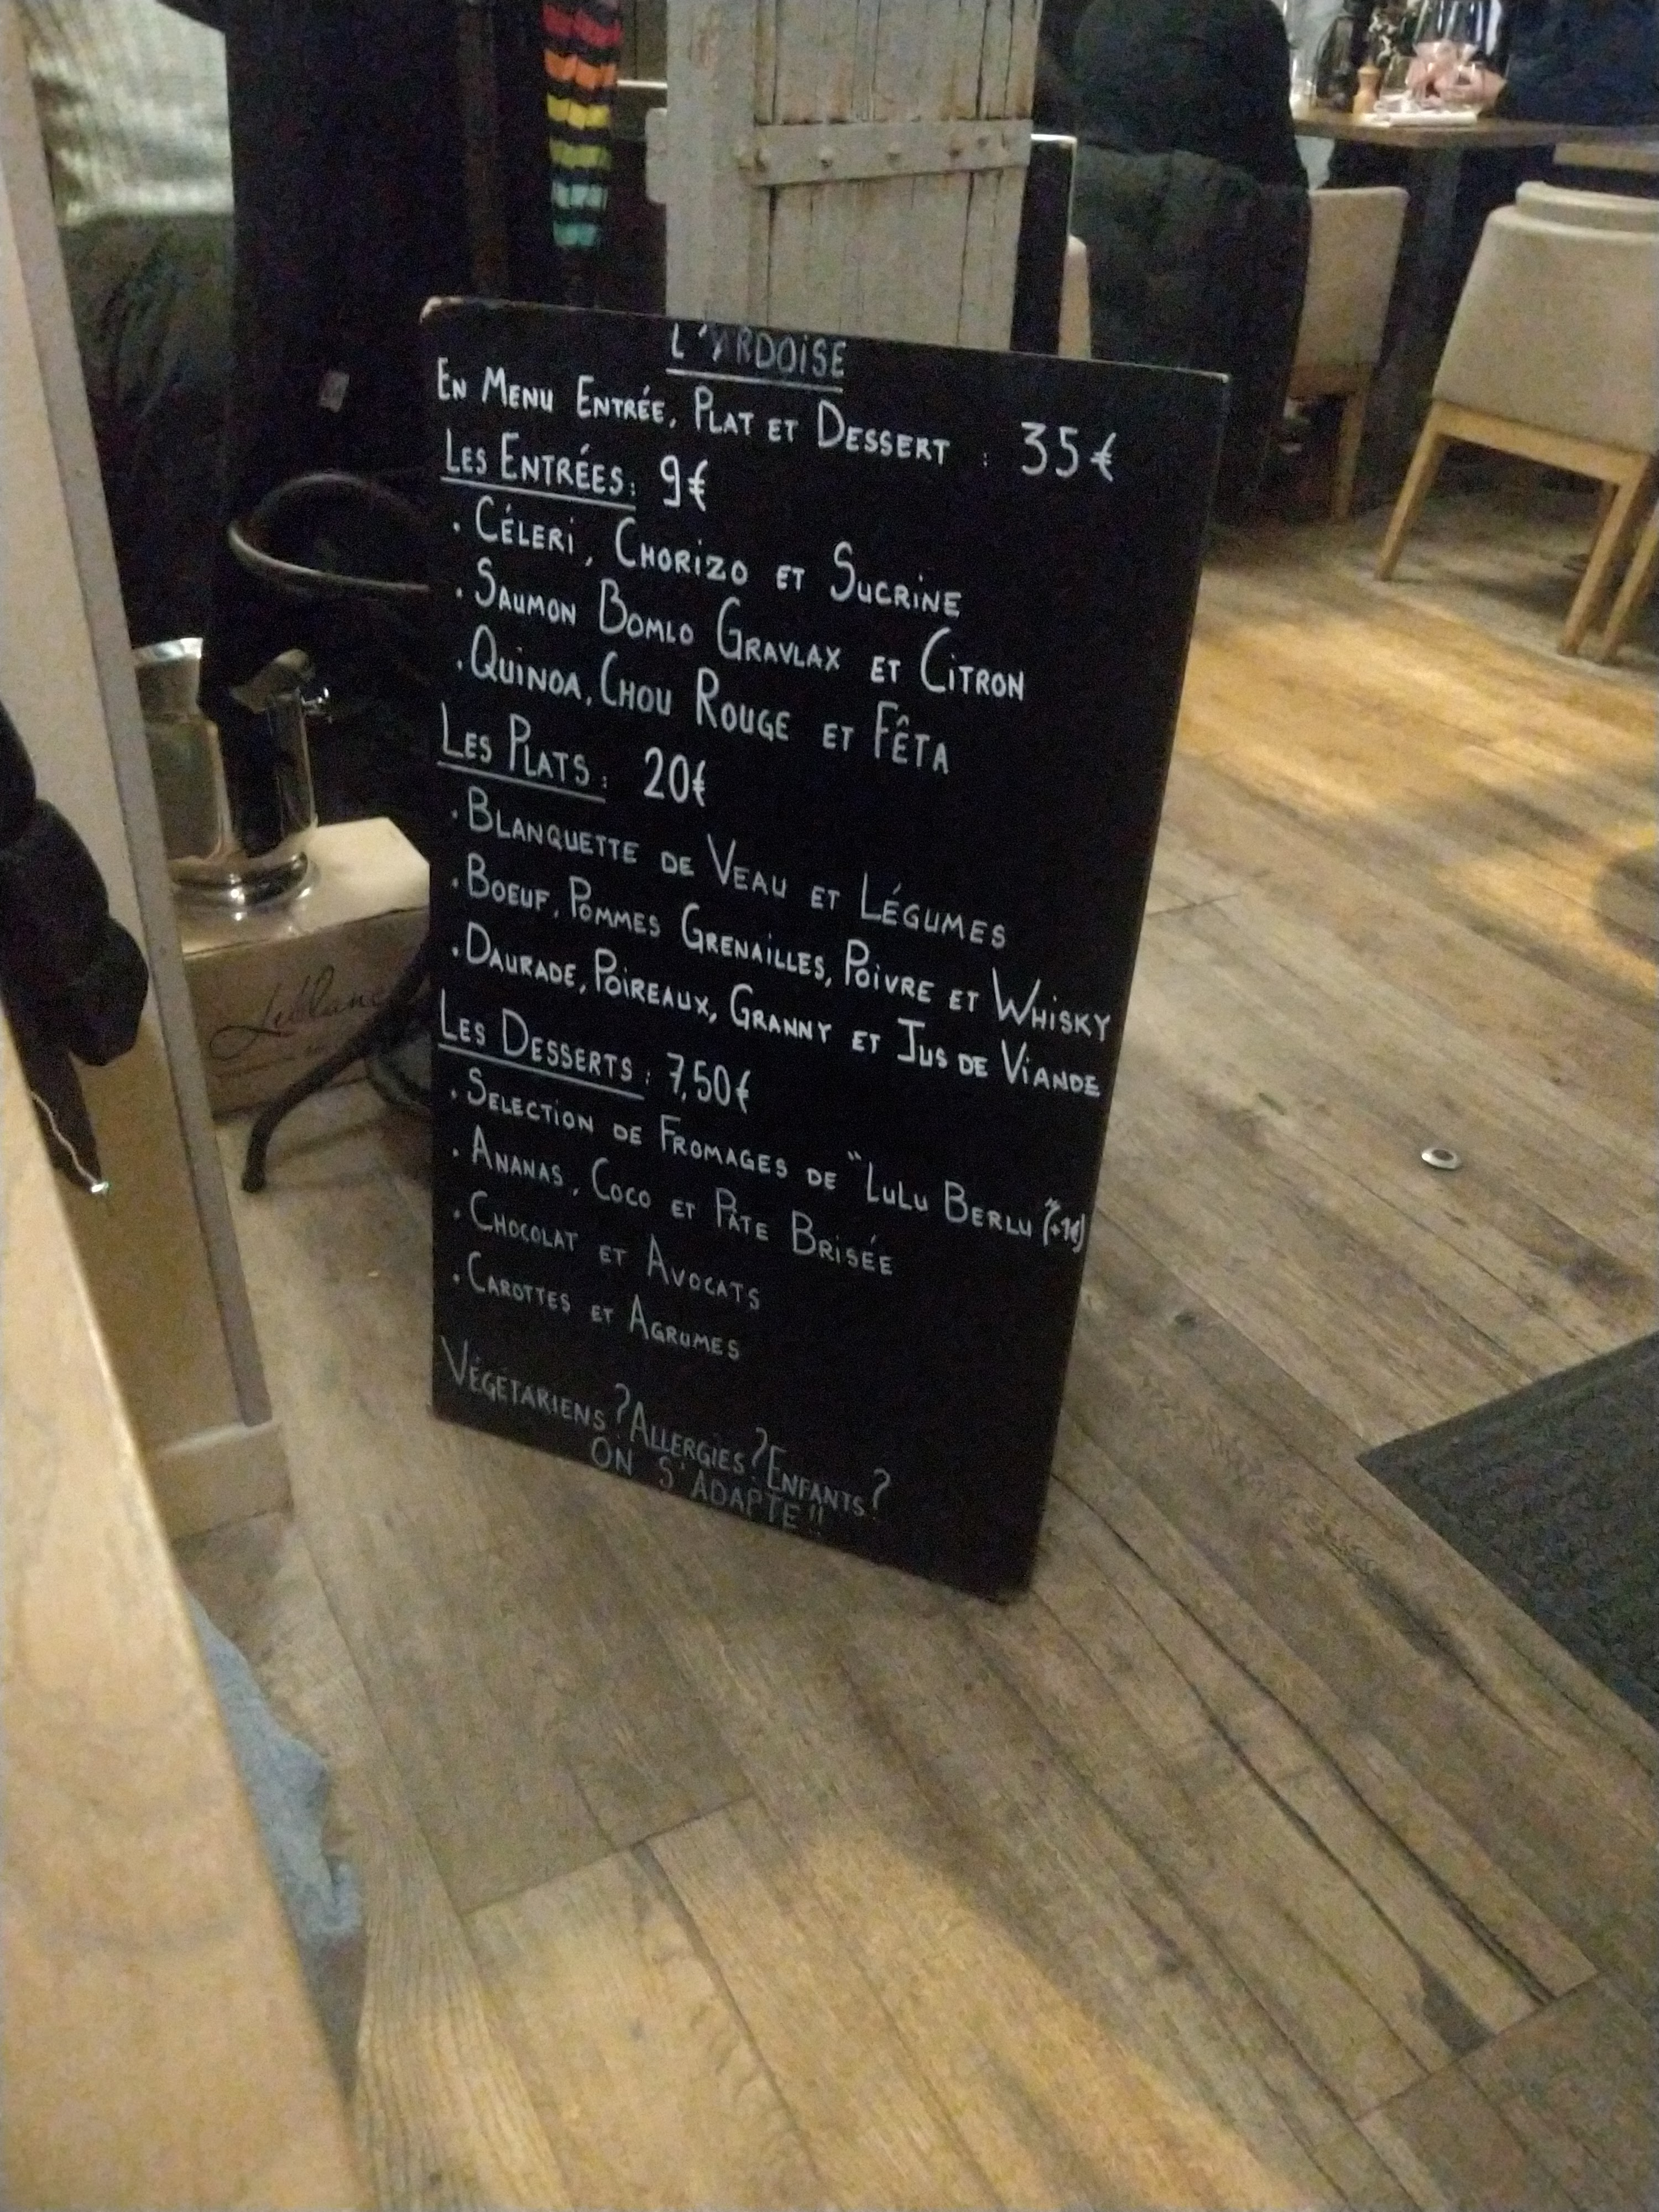 L'ARDOISE
EN MENU ENTRÉE, PLAT ET DESSERT : 35€
LES ENTRÉES: 9€
. CÉLERI, CHORIZO ET SUCRINE
. SAUMON BOMLO GRAVLAX ET CITRON
. QUINOA, CHOU ROUGE ET FÊTA
LES PLATS: 20€
. BLANQUETTE DE VEAU ET LÉGUMES
. BOEUF, POMMES GRENAILLES, POIVRE ET WHISKY
. DAURADE, POIREAUX, GRANNY ET JUS DE VIANDE
LES DESSERTS: 7,50€
. SELECTION DE FROMAGES DE "LULU BERLU" (+1€)
. ANANAS, COCO ET PÂTE BRISÉE
. CHOCOLAT ET AVOCATS
. CAROTTES ET AGRUMES
VÉGÉTARIENS? ALLERGIES? ENFANTS?
ON S'ADAPTE!!
Leblanc